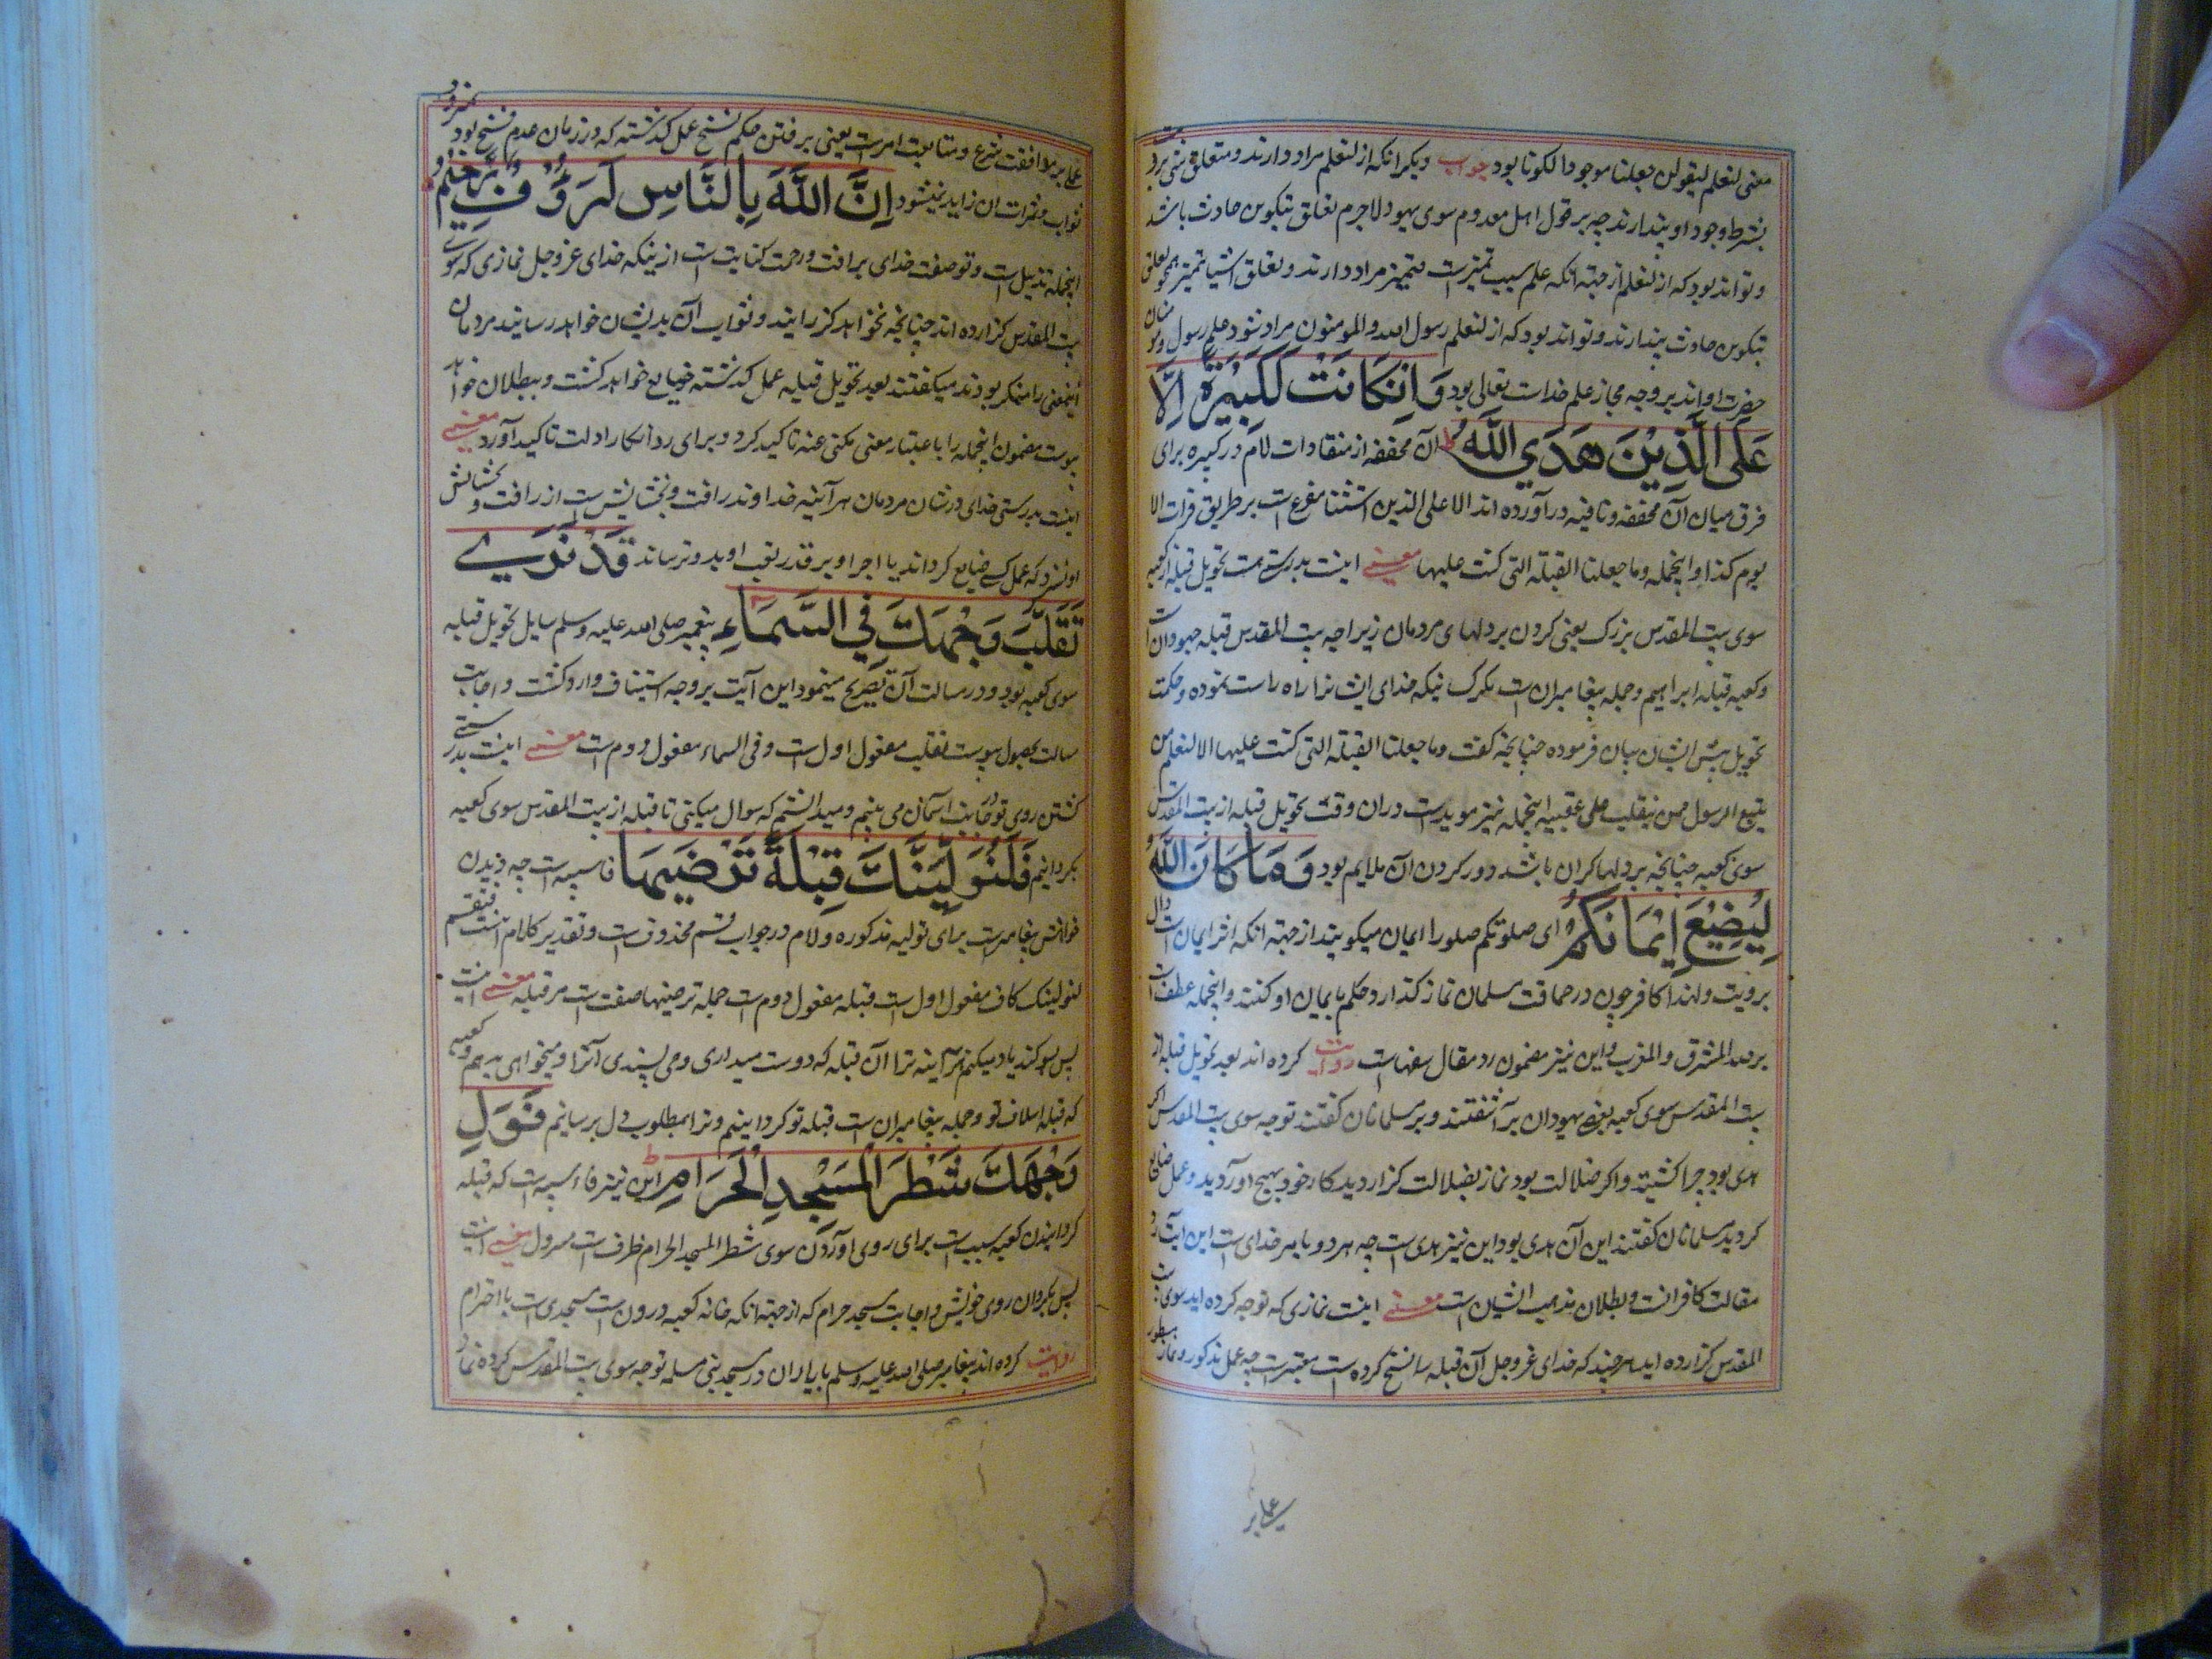 معنی لنعلم لیقولن جعلنا موجودا لکونا بود جواب دیکر انکه از لنعلم مراد دارند و متعلق
بشرط وجود او پندارند چه بر قول اهل معدوم سوی یهود لاجرم تعلق بتکوین حادث باشد
و تواند بود که از لنعلم از جهته انکه علم سبب تمیز است تمییز مراد دارند و تعلق اشیا بتمییز همچو تعلق
بتکوین حادث پندارند و تواند بود که از لنعلم رسول الله والمومنون مراد شود علم رسول
حضرت اواند بر وجه مجاز علم خداست تعالی بود وَاِنْ كَانَتْ لَكَبِيْرَةً اِلَّا
عَلَى الَّذِيْنَ هَدَي اللّٰهُ ط ان مخففه از مثقله است لام در کبیره برای
فرق میان آن مخففه و نافیه درآورده اند الا علی الذین استثنا مفرغ است بر طریق قرات الا
یوم کذا و اینجمله وما جعلنا القبلة التی کنت علیها معنی اینست بدرستی هست تحویل قبله از کعبه
سوی بیت المقدس بزرک یعنی کردن بر دلهای مردمان زیرا چه بیت المقدس قبله جهودان است
و کعبه قبله ابراهیم و جمله پیغامبران است مکر ک نیکه خدای ایشانرا راه راست نموده و حکمت
تحویل پیش ایشان بیان فرموده چنانچه کفت وما جعلنا القبلة التی کنت علیها الا لنعلم من
یتبع الرسول ممن ینقلب علی عقبیه اینجمله نیز موید است دران وقت تحویل قبله از بیت المقدس
سوی کعبه چنانچه بر دلها کران باشد دور کردن ان ملایم بود وَمَا كَانَ اللّٰهُ
لِيُضِيْعَ اِيْمَانَكُمْ ای صلوتکم صلو را ایمان میکویند از جهته انکه اثر ایمان است دال
برویت ولهذا کافر چون در جماعت مسلمان نماز کذارد حکم بایمان او کنند و اینجمله عطف است
بر ولله المشرق والمغرب و این نیز مضمون رد مقال سفها است روایت کرده اند بعد تحویل قبله از
بیت المقدس سوی کعبه بعضی یهودان برآشفتند و بر مسلمانان کفتند توجه سوی بیت المقدس اکر
هدی بود چرا کشتید و اکر ضلالت بود نماز بضلالت کزاردید کار خود بهیچ آوردید و عمل ضایع
کردید مسلمانان کفتند این آن هدی بود این نیز هدی است چه هر دو بامر خدای است این آیت رد
مقالت کافرانست و بطلان مذهب ایشان است معنی اینست نمازی که توجه کرده اید سوی بیت
المقدس کزارده اید هر چند که خدای عزوجل آن قبله را نسخ کرده است معتبرست چه عمل مذکور
علی بر
علی بر موافقت شرع و متابعت امرست یعنی بر فتن حکم نسخ عمل کذشته که در زمان عدم نسخ بود
ثواب و ثمرات ان زاید نیشود اِنَّ اللّٰهَ بِالنَّاسِ لَرَؤُفٌ رَّحِيْمٌ
اینجمله تذییل است و توصفت خدای برافت و رحمت کنایت است از ینکه خدای عزوجل نمازی که سوی
بیت المقدس کزارده اند چنانچه نخواهد کزرانید و ثواب آن بدیشان خواهد رسانید مردمان
اینمعنی را منکر بودند میکفتند بعد تحویل قبله عمل کذشته ضیایع خواهد کشت و ببطلان خواهد
پیوست مضمون اینجمله را باعتبار معنی مکنی عنه تاکید کرد و برای رد انکار ادلت تاکید آورد معنی
اینست بدرستی خدای در شان مردمان هر آینه خداوند رافت و بخشایش است از رافت و بخشایش
او نسزد که عمل کسی ضایع کرداند یا اجر او بر قدر تعب او بدو نرساند قَدْ نَرٰي
تَقَلُّبَ وَجْهِكَ فِي السَّمَاءِ پیغمبر صلی الله علیه وسلم سایل تحویل قبله
سوی کعبه بود و در رسالت آن تصریح مینمود این آیت بر وجه استیناف وارد کشت و اجابت
سالت بحصول پیوست تقلب مفعول اول است و فی السماء مفعول دوم است معنی اینست بدرستی
کشتن روی تو جانب آسمان می بینم و میدانستم که سوال میکنی تا قبله از بیت المقدس سوی کعبه
بکردانیم فَلَنُوَلِّيَنَّكَ قِبْلَةً تَرْضٰيهَا فا سببیه است چه دیدن
خواهش پیغامبرست برای تولیه مذکوره و لام در جواب قسم محذوف است و تقدیر کلام اینست فنقسم
لنولینک کاف مفعول اول است قبله مفعول دوم است جمله ترضیها صفت است مر قبله معنی اینست
پس سوکند یاد میکنم هر آینه ترا آن قبله که دوست میداری و می پسندی آنرا و میخواهی بدهیم و کعبه
که قبله اسلاف تو و جمله پیغامبران است قبله تو کردانیم و ترا بمطلوب دل برسانیم فَوَلِّ
وَجْهَكَ شَطْرَ الْمَسْجِدِ الْحَرَامِ ط این نیز فاء سببیه است که قبله
کردانیدن کعبه سبب است برای روی آوردن سوی شطر المسجد الحرام ظرف است مر ول معنی اینست
پس بکردان روی خویش را جانب مسجد حرام که از جهته انکه خانه کعبه درون است مسجدی است با احترام
روایت کرده اند پیغامبر صلی الله علیه وسلم با یاران در مسجد بنی سلمه توجه سوی بیت المقدس کرده نماز